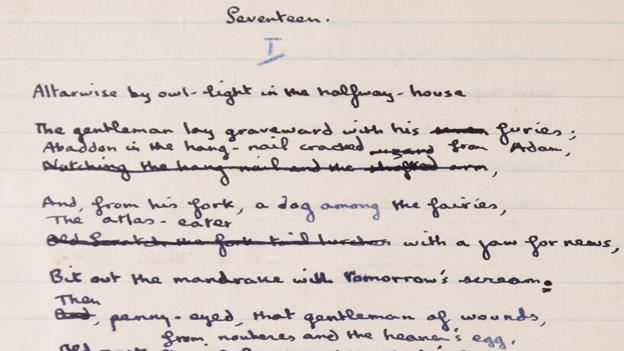 Seventeen.
I
Altarwise by owl-light in the halfway-house
The gentleman lay graveward with his furies;
Abaddon in the hang-nail cracked from Adam,
Notching the hang nail and the arm,
And, from his fork, a dog among the fairies,
The atlas-eater
Old Scratch the fork tail with a jaw for news,
Bit out the mandrake with tomorrow's scream.
Then
, penny-eyed, that gentleman of wounds,
from nowheres and the heaven's egg,